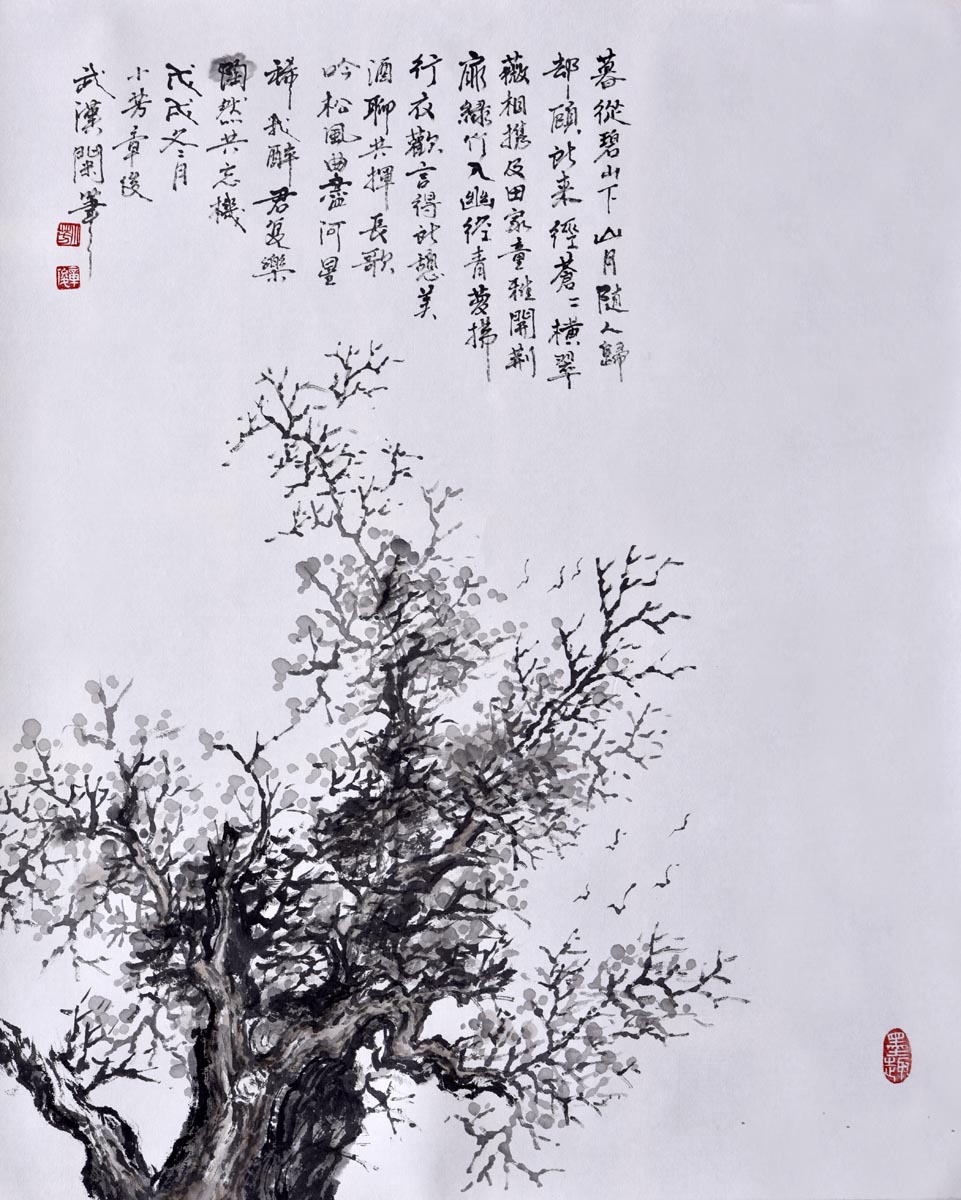 暮從碧山下山月隨人歸
却頋所来經蒼〻橫翠
薇相携及田家童稚開荊
扉綠竹入幽徑青夢拂
行衣歡言得所憩美
酒聊共揮長歌
吟松風曲盡河星
稀我醉君复樂
陶然共忘機
戊戌冬月
小芳章俊
武漢閑筆
墨趣